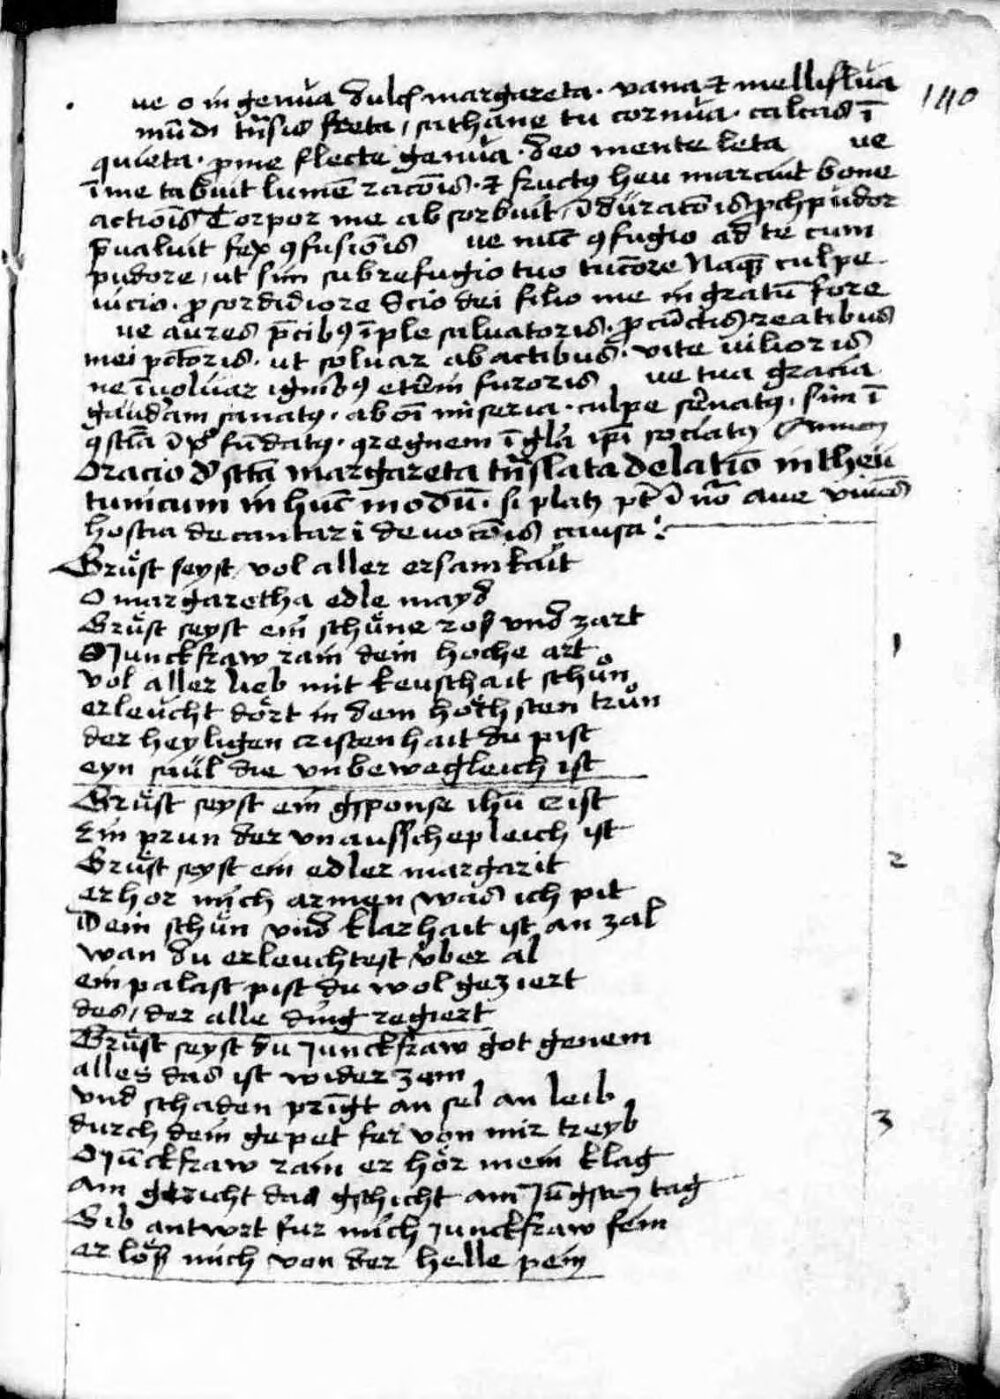 140
ue o ingenua dulcꝭ margareta · vana ⁊ melliflua
mūdi tn̄sis freta / sathane tu cornua · calcas ī
quieta · p̄me flecte genua · deo mente leta ue
īme tabuit lumē racōis · ⁊ fructꝰ heu marcuit bone
actiōis Torpor me absorbuit / īduratōis pudor
p̄ualuit fex ꝯfusiōis ue nūc ꝯfugio ad te cum
pudore / ut sim sub refugio tuo tucōre Naqꝫ culpe
uicio · p̱ sordidiore Scio dei filio me ingratū fore
ue aures p̄cibꝰ īple saluatoris · p̱ cūctis reatibus
mei pctōris · ut soluar ab actibus · vite uilioris
ne īuoluar ignibꝰ et̄im furoris ue tua gracia
gaudeam sanatꝰ · ab oī miseria · culpe sēruatꝰ · sim ī
ꝯstā fūdatꝰ · ꝯregnem ī gl̄a ip̄i sociatꝰ Amen
Oracio d' scta margareta tn̄slata de latīo in theu
tunicum in hūc modū · si placꝫ pr̄ nr̄ aue viuēs
hostia decantari deuocōis causa :
Grüst seyst / vol aller ersamkait
O margaretha edle mayd
Grüst seyst ein schüne ros vnd zart
O Junckfraw rain dein hoche art
vol aller lieb mit keuschait schůn
erleücht dört in dem höchsten trůn
der heyligen cristenhait du pist
eyn saül die vnbewegleich ist
1
Grüst seyst ein gsponse ihū crist
Ein prun der vnausschepleich ist
Grüst seyst ein edler margarit
erhor mich armen was ich pit
Dein schün vnd klarhait ist an zal
wan du erleuchtest über al
ein palast pist du wol geziert
des / der alle ding regiert
2
Grüst seyst du Junckfraw got genem
alles das ist widerzem
vnd schaden pringt an sel an leib
durch dein gepet fer von mir treyb
O Jūckfraw rain erhör mein klag
am gericht das gschicht am Jūgstn tag
Gib antwort fur mich Junckfraw fein
erlöß mich von der helle pein
3